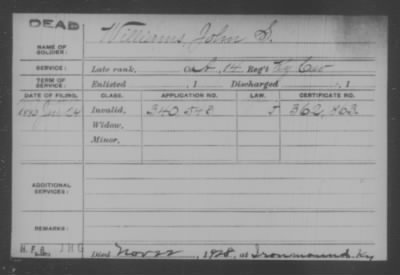 DEAD
NAME OF SOLDIER: Williams, John S.
SERVICE: Late rank, Co. A, 14 Reg't Ky Cav
TERM OF SERVICE: Enlisted , 1 Discharged , 1
DATE OF FILING. CLASS. APPLICATION NO. LAW. CERTIFICATE NO.
24 Invalid, 340.548 362,803
Widow,
Minor,
ADDITIONAL SERVICES:
REMARKS:
Died Nov 22, 1928, at Ironmound, Ky